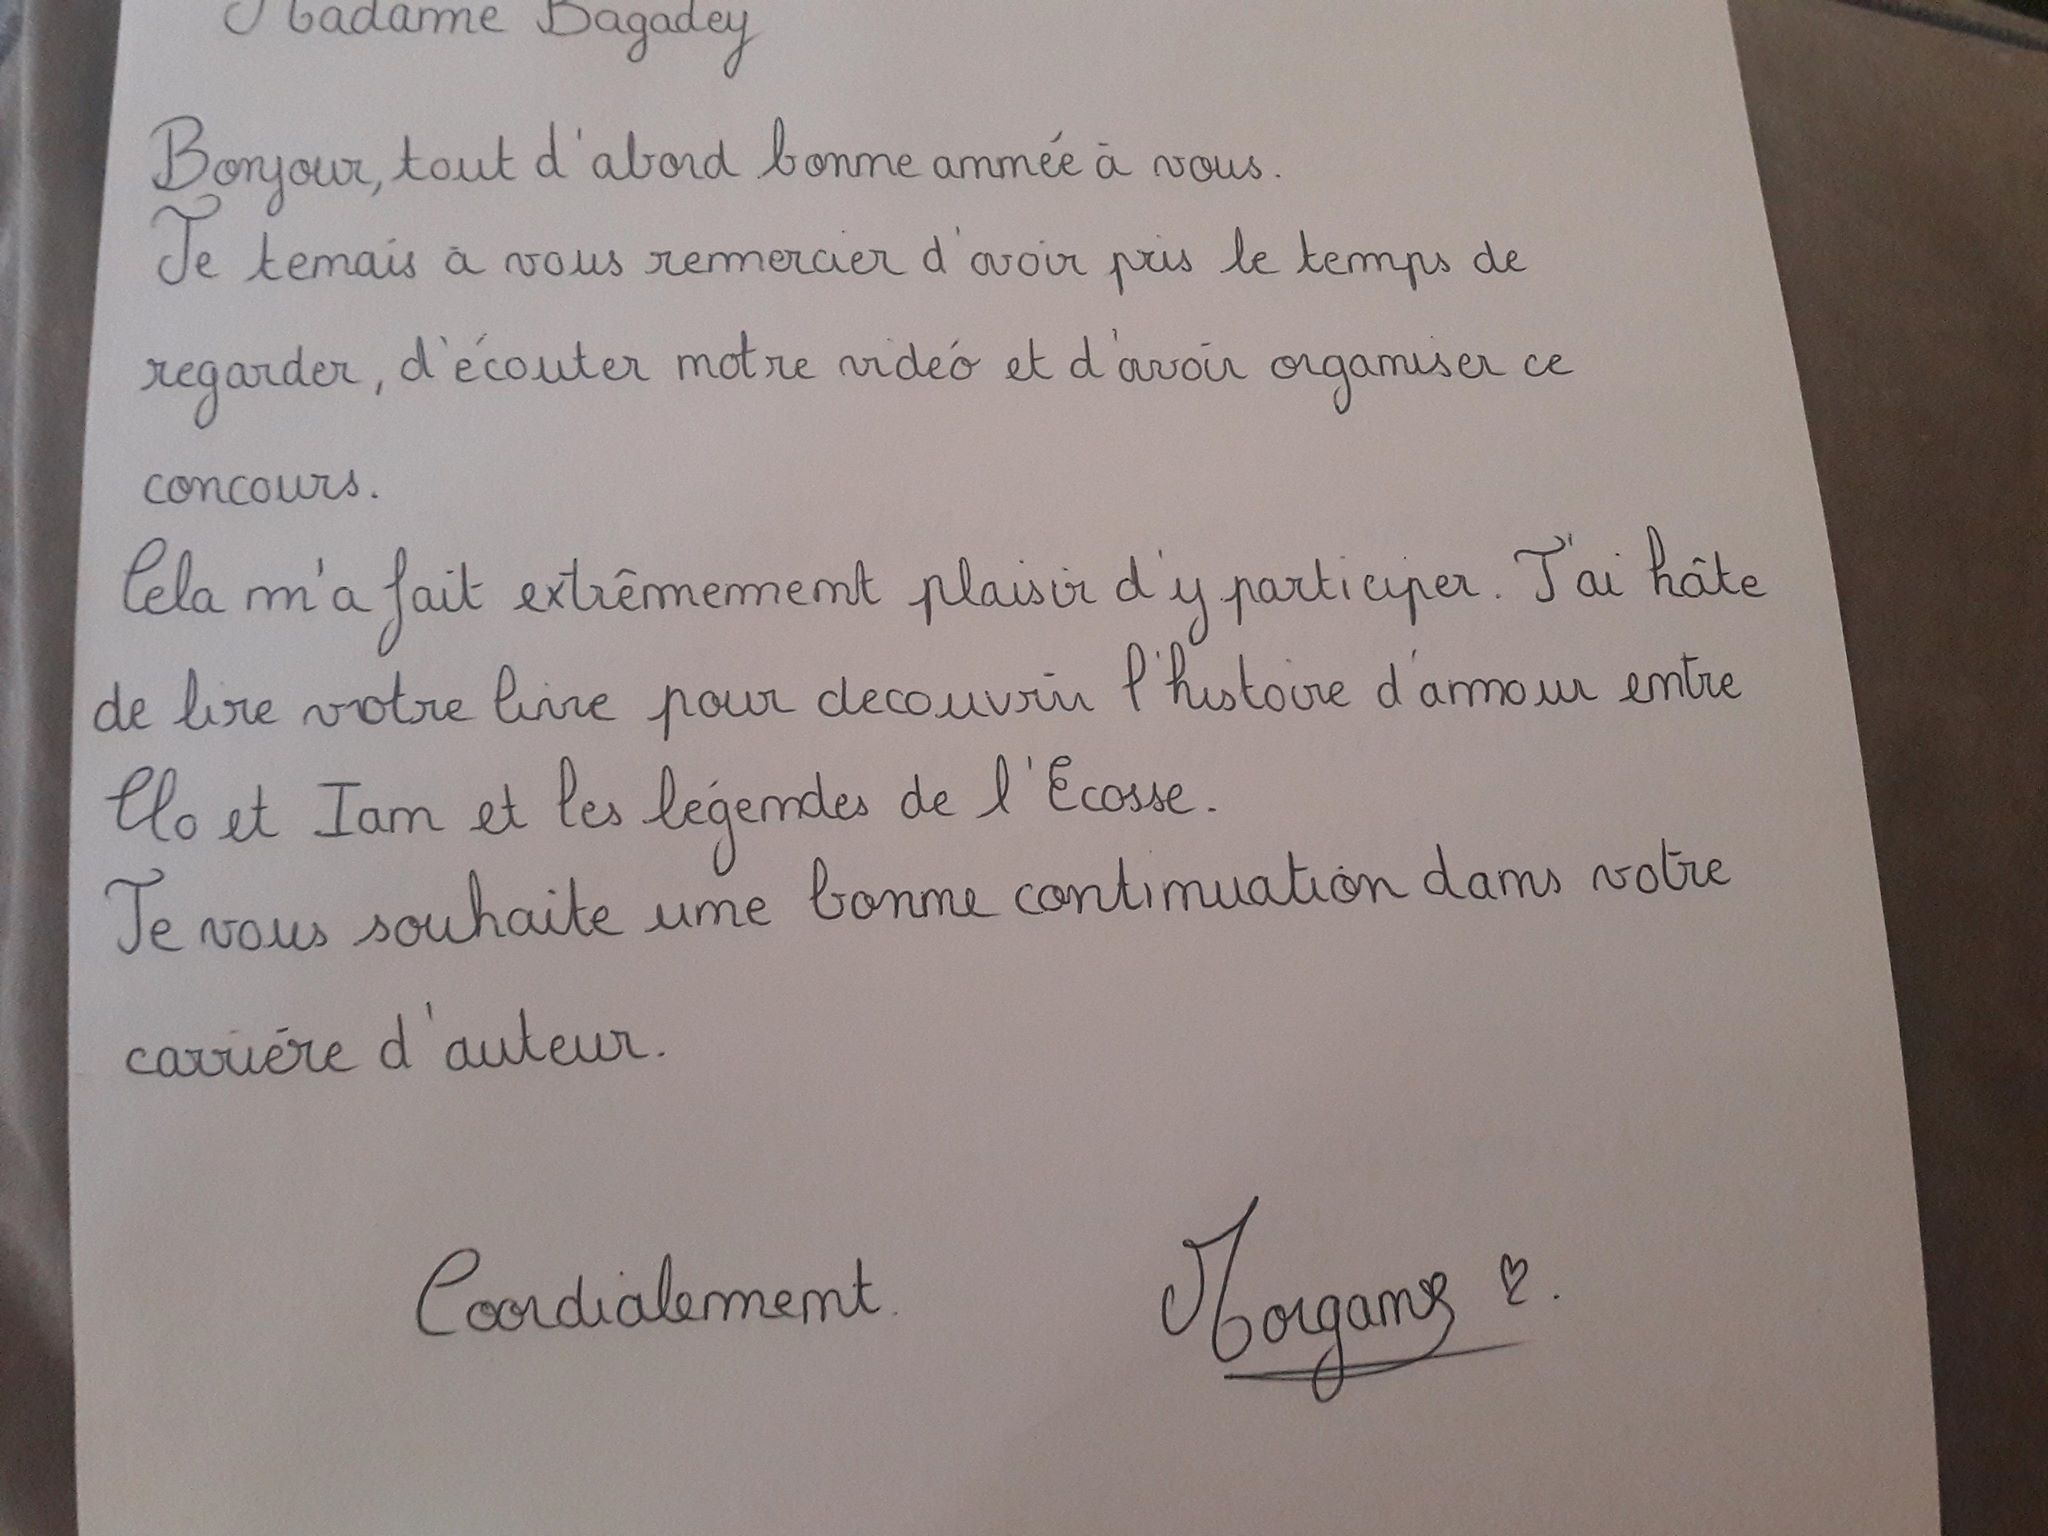 Madame Bagadey
Bonjour, tout d'abord bonne année à vous.
Je tenais à vous remercier d'avoir pris le temps de
regarder, d'écouter notre vidéo et d'avoir organiser ce
concours.
Cela m'a fait extrêmement plaisir d'y participer. J'ai hâte
de lire votre livre pour decouvrir l'histoire d'amour entre
Clo et Ian et les légendes de l'Ecosse.
Je vous souhaite une bonne continuation dans votre
carrière d'auteur.
Cordialement. Morgane ♡.